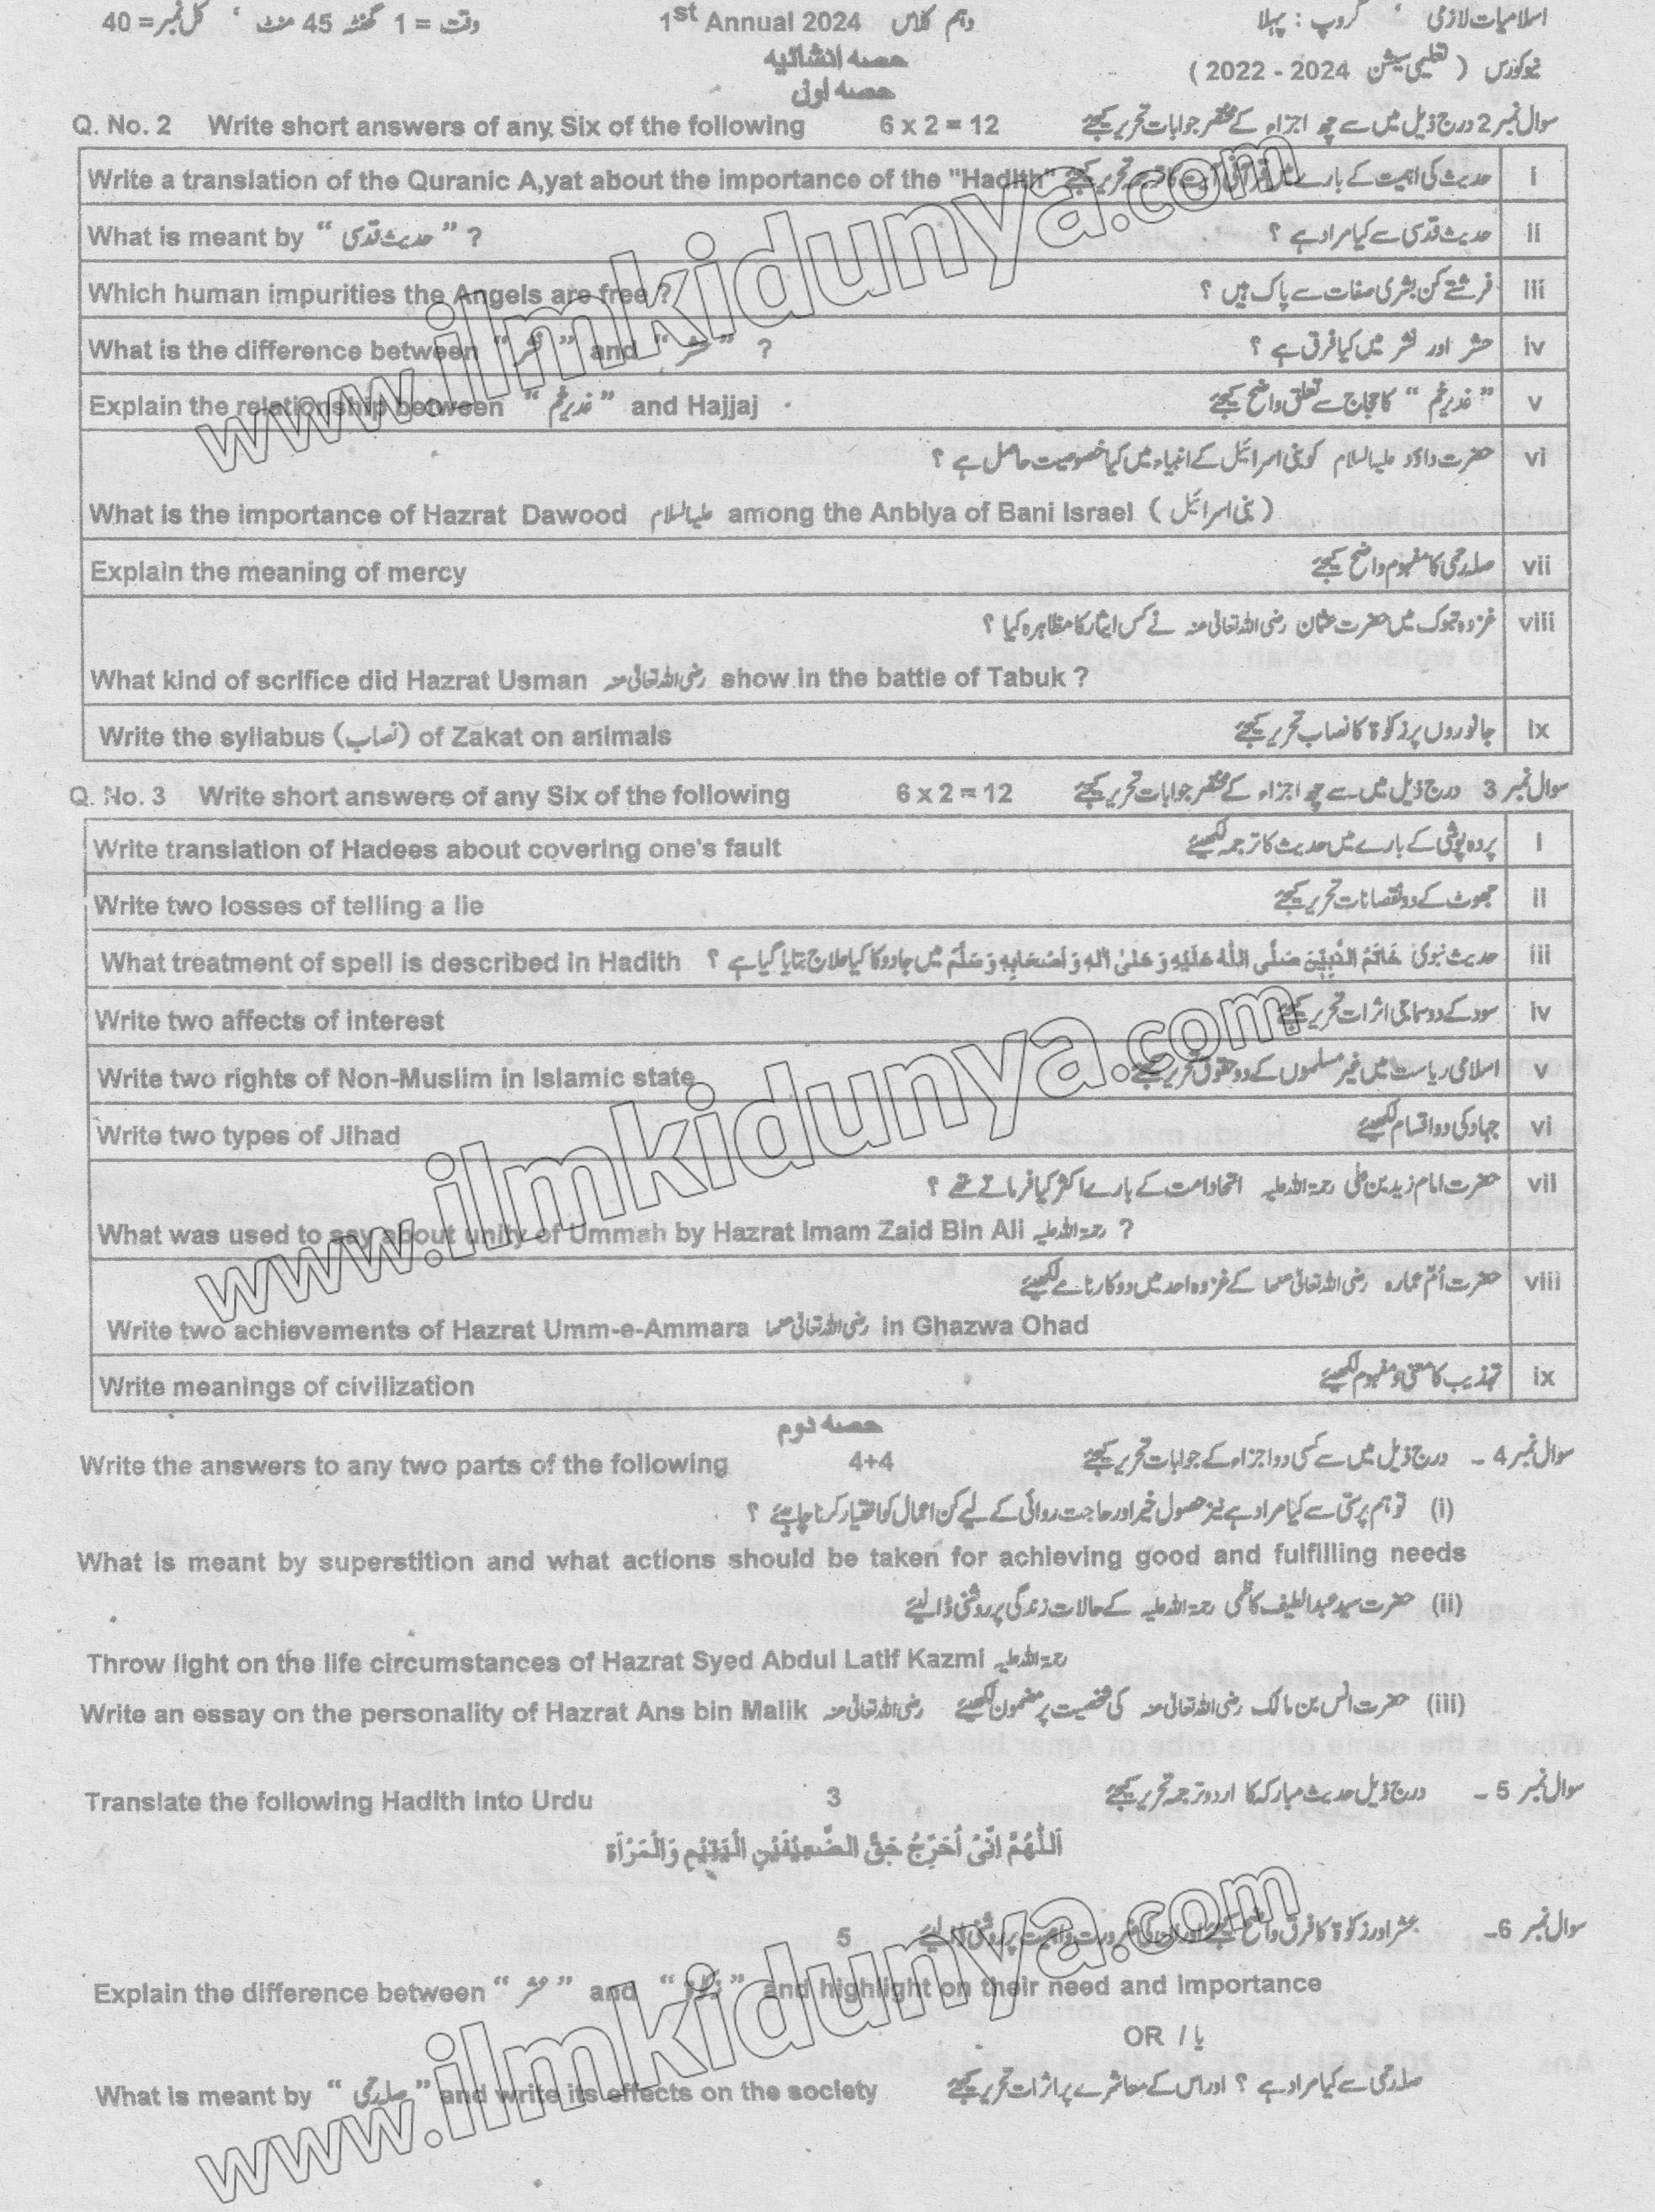 اسلامیات لازمی ، گروپ : پہلا دہم کلاس 1st Annual 2024 وقت = 1 گھنٹہ 45 منٹ ، کل نمبر = 40
نیوکورس ( تعلیمی سیشن 2024 - 2022 )
حصہ انشائیہ
حصہ اول
Q. No. 2 Write short answers of any Six of the following 6 x 2 = 12 سوال نمبر 2 درج ذیل میں سے چھ اجزاء کے مختصر جوابات تحریر کیجئے
Write a translation of the Quranic A,yat about the importance of the "Hadith" حدیث کی اہمیت کے بارے میں قرآنی آیت کا ترجمہ تحریر کیجئے i
What is meant by “ حدیث قدسی ” ? حدیث قدسی سے کیا مراد ہے ؟ ii
Which human impurities the Angels are free ? فرشتے کن بشری صفات سے پاک ہیں ؟ iii
What is the difference between “ نشر ” and “ حشر ” ? حشر اور نشر میں کیا فرق ہے ؟ iv
Explain the relationship between “ غدیر خم ” and Hajjaj ” غدیر خم “ کا حجاج سے تعلق واضح کیجئے v
حضرت داؤد علیہ السلام کو بنی اسرائیل کے انبیاء میں کیا خصوصیت حاصل ہے ؟ vi
What is the importance of Hazrat Dawood علیہ السلام among the Anbiya of Bani Israel ( بنی اسرائیل )
Explain the meaning of mercy صلہ رحمی کا مفہوم واضح کیجئے vii
غزوہ تبوک میں حضرت عثمان رضی اللہ تعالیٰ عنہ نے کس ایثار کا مظاہرہ کیا ؟ viii
What kind of scrifice did Hazrat Usman رضی اللہ تعالیٰ عنہ show in the battle of Tabuk ?
Write the syllabus (نصاب) of Zakat on animals جانوروں پر زکوٰۃ کا نصاب تحریر کیجئے ix
Q. No. 3 Write short answers of any Six of the following 6 x 2 = 12 سوال نمبر 3 درج ذیل میں سے چھ اجزاء کے مختصر جوابات تحریر کیجئے
Write translation of Hadees about covering one's fault پردہ پوشی کے بارے میں حدیث کا ترجمہ لکھیئے i
Write two losses of telling a lie جھوٹ کے دو نقصانات تحریر کیجئے ii
What treatment of spell is described in Hadith حدیث نبوی خَاتَمُ النَّبِيّٖنَ صَلَّى اللّٰهُ عَلَيْهِ وَعَلٰى آلِهٖ وَاَصْحَابِهٖ وَسَلَّمَ میں جادو کا کیا علاج بتایا گیا ہے ؟ iii
Write two affects of interest سود کے دو سماجی اثرات تحریر کیجئے iv
Write two rights of Non-Muslim in Islamic state اسلامی ریاست میں غیر مسلموں کے دو حقوق تحریر کیجئے v
Write two types of Jihad جہاد کی دو اقسام لکھیئے vi
حضرت امام زید بن علی رحمۃ اللہ علیہ اتحاد امت کے بارے اکثر کیا فرماتے تھے ؟ vii
What was used to say about unity of Ummah by Hazrat Imam Zaid Bin Ali رحمۃ اللہ علیہ ?
حضرت اُم عمارہ رضی اللہ تعالیٰ عنہا کے غزوہ احد میں دو کارنامے لکھیئے viii
Write two achievements of Hazrat Umm-e-Ammara رضی اللہ تعالیٰ عنہا in Ghazwa Ohad
Write meanings of civilization تہذیب کا معنی و مفہوم لکھیئے ix
حصہ دوم
Write the answers to any two parts of the following 4+4 سوال نمبر 4 - درج ذیل میں سے کسی دو اجزاء کے جوابات تحریر کیجئے
(i) توہم پرستی سے کیا مراد ہے نیز حصول خیر اور حاجت روائی کے لیے کن اعمال کو اختیار کرنا چاہیئے ؟
What is meant by superstition and what actions should be taken for achieving good and fulfilling needs
(ii) حضرت سید عبداللطیف کاظمی رحمۃ اللہ علیہ کے حالات زندگی پر روشنی ڈالیئے
Throw light on the life circumstances of Hazrat Syed Abdul Latif Kazmi رحمۃ اللہ علیہ
Write an essay on the personality of Hazrat Ans bin Malik رضی اللہ تعالیٰ عنہ (iii) حضرت انس بن مالک رضی اللہ تعالیٰ عنہ کی شخصیت پر مضمون لکھیئے
Translate the following Hadith into Urdu 3 سوال نمبر 5 - درج ذیل حدیث مبارکہ کا اردو ترجمہ تحریر کیجئے
اَللّٰهُمَّ اِنِّىْ اُحَرِّجُ حَقَّ الضَّعِيْفَيْنِ الْيَتِيْمِ وَالْمَرْاَةِ
سوال نمبر 6- عشر اور زکوٰۃ کا فرق واضح کیجئے اور ان کی ضرورت و اہمیت پر روشنی ڈالیئے 5
Explain the difference between “ عشر ” and “ زکوٰۃ ” and highlight on their need and importance
OR / یا
What is meant by “ صلہ رحمی ” and write its effects on the society صلہ رحمی سے کیا مراد ہے ؟ اور اس کے معاشرے پر اثرات تحریر کیجئے
www.ilmkidunya.com
www.ilmkidunya.com
www.ilmkidunya.com